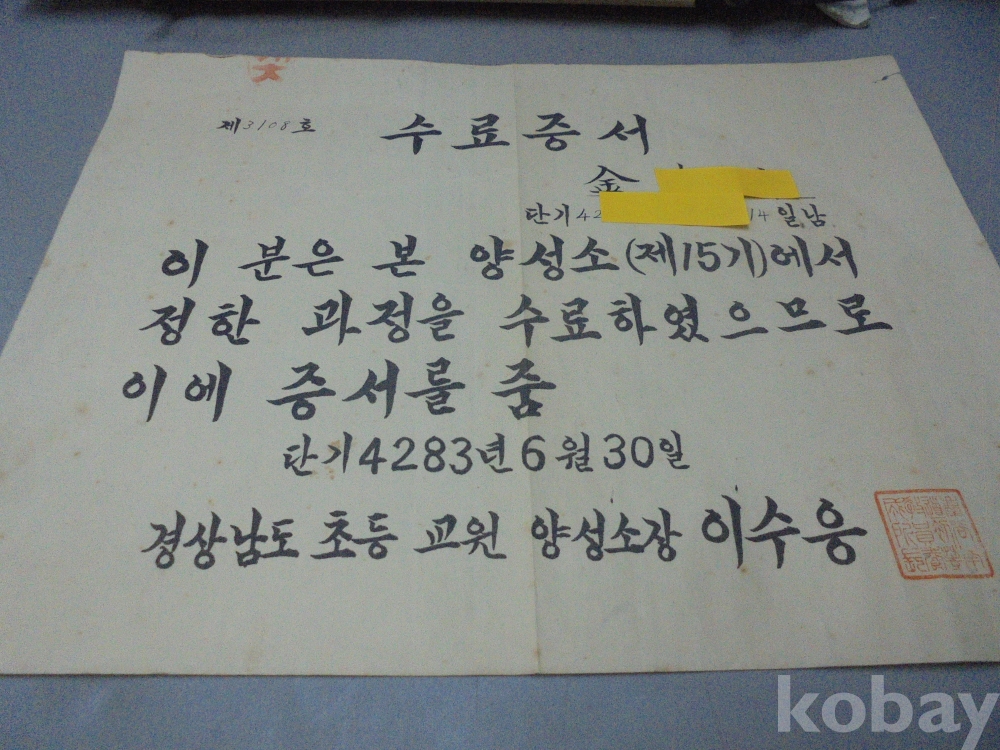 제3108호
수료증서
金
단기 42 14일남
이 분은 본 양성소(제15기)에서
정한 과정을 수료하였으므로
이에 증서를 줌
단기4283년6월30일
경상남도 초등 교원 양성소장 이수응
kobay